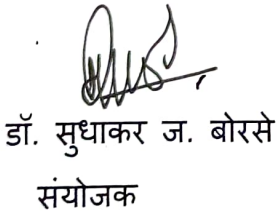 डॉ. सुधाकर ज. बोरसे
संयोजक